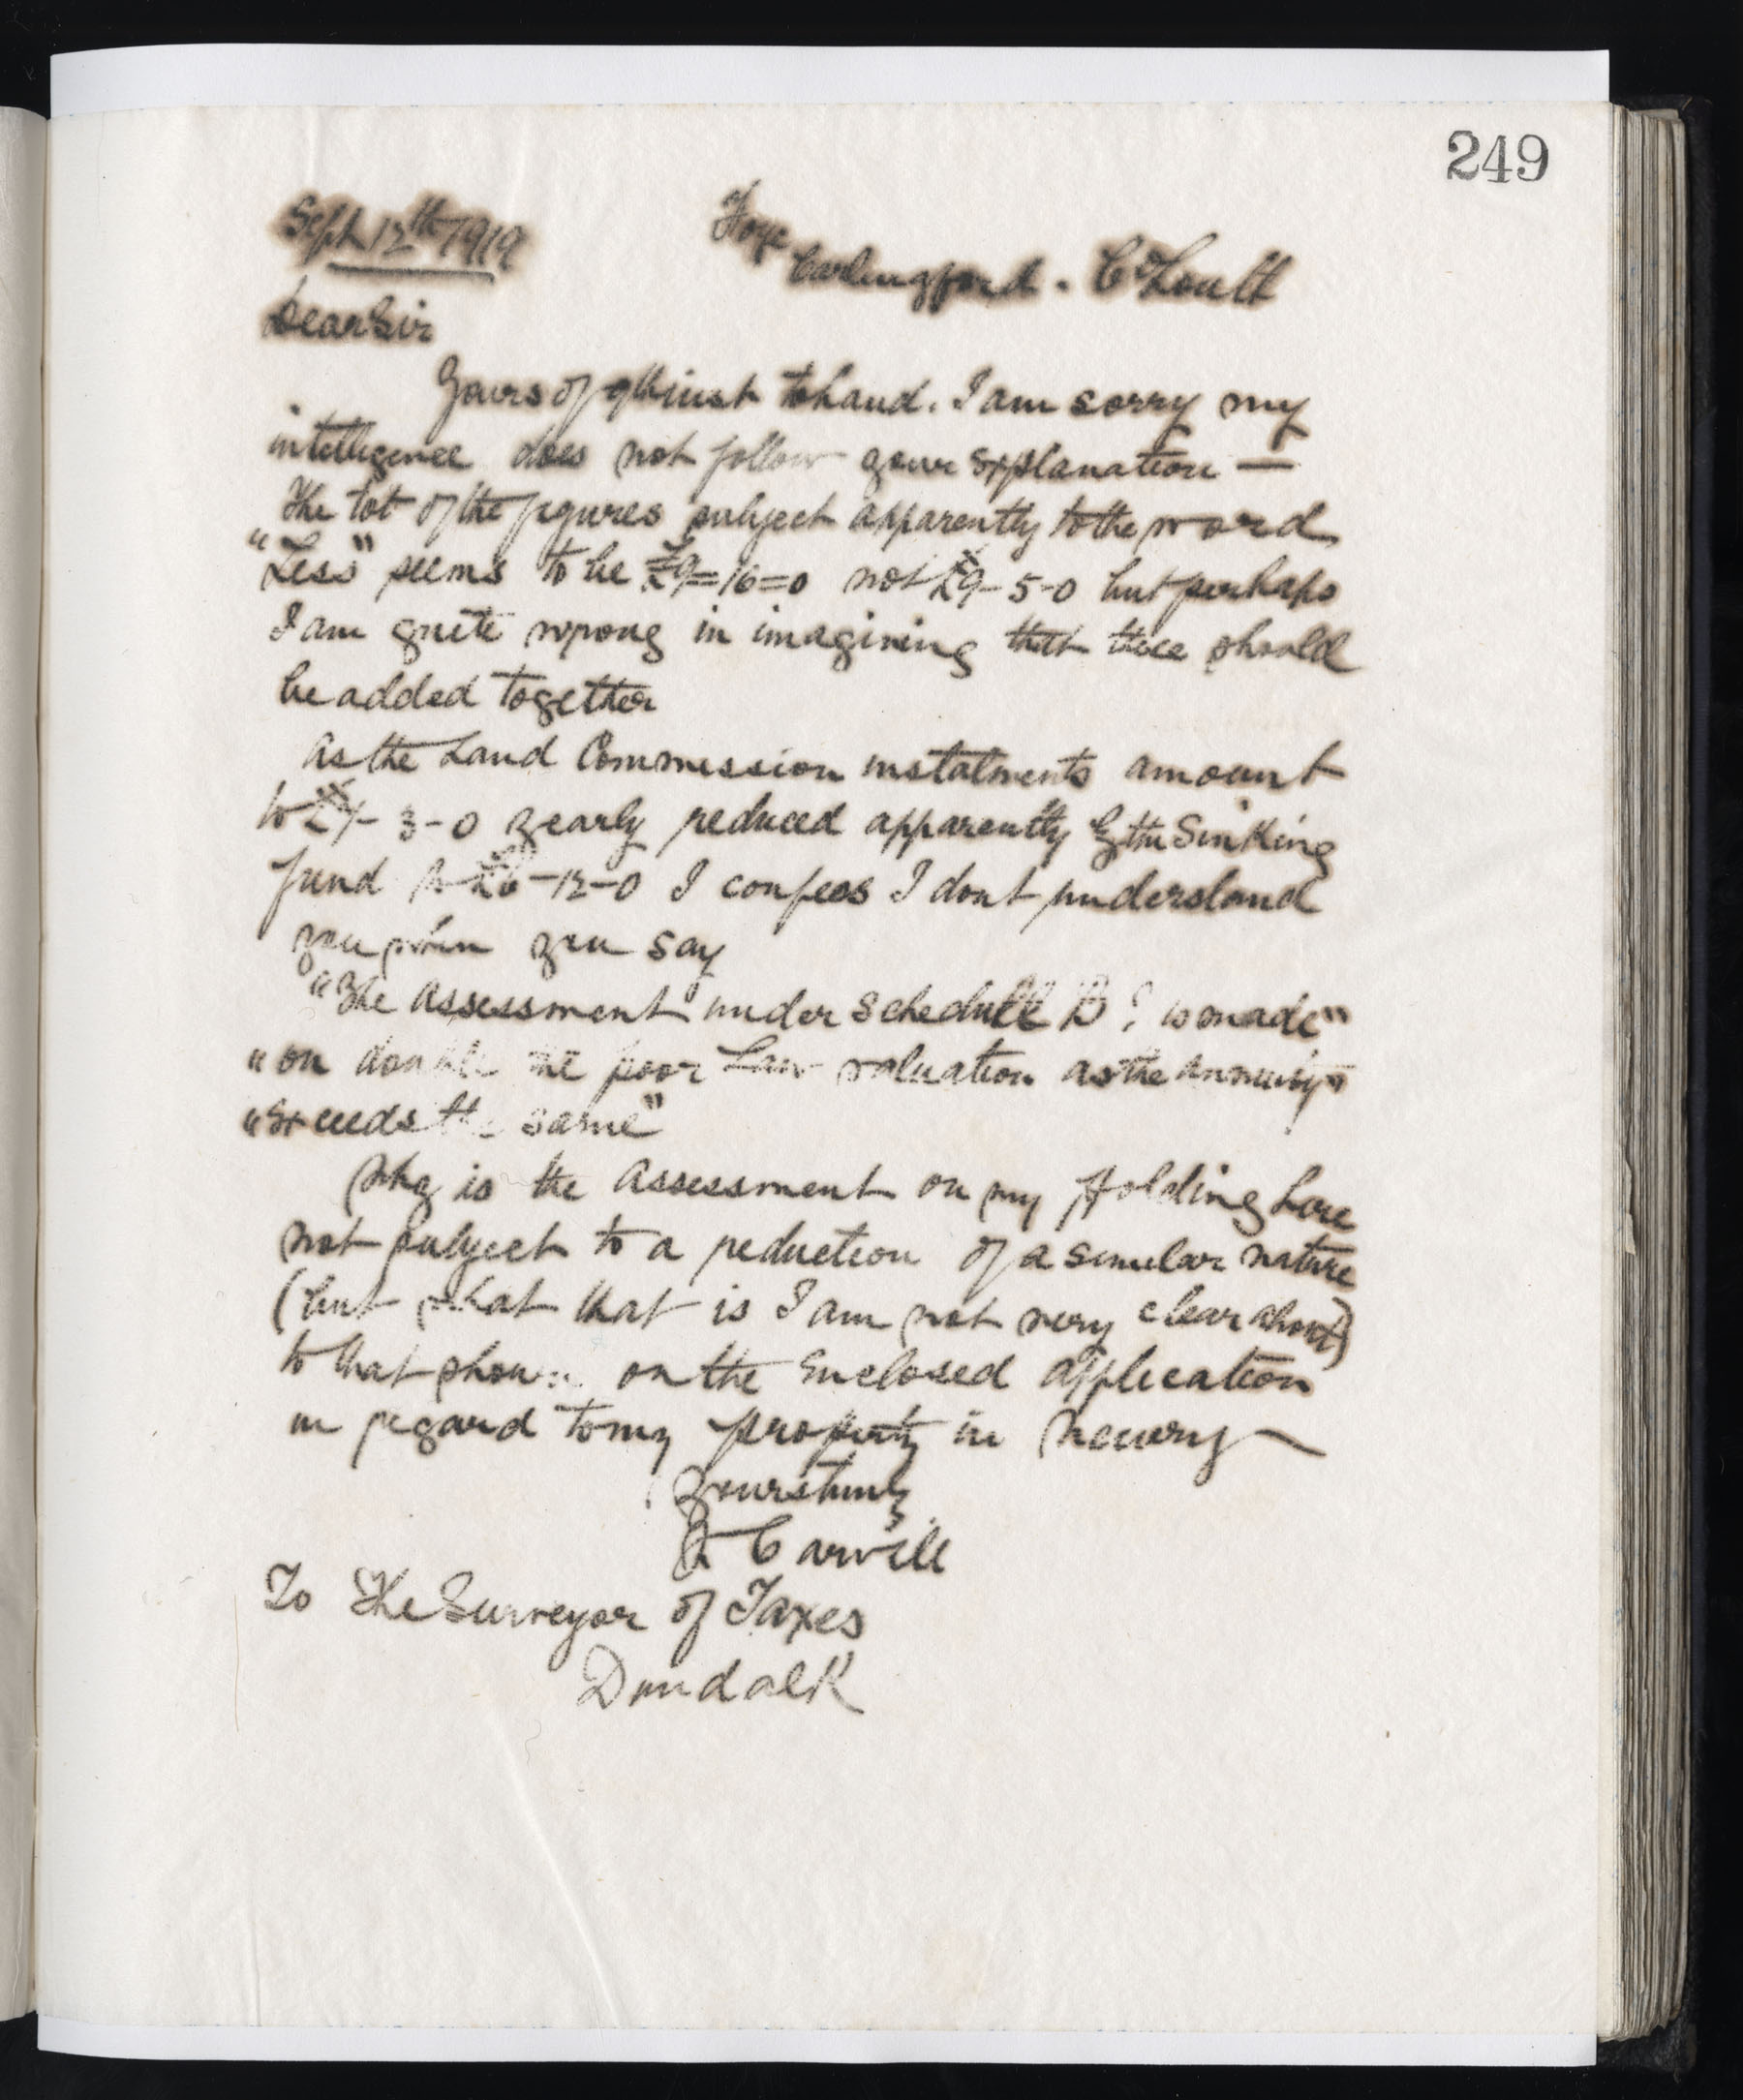 249
Sept 12th 1919
Foye
Carlingford. Co Louth
Dear Sir
Yours of 9th inst to hand. I am sorry my
intelligence does not follow your explanation —
The tot of the figures subject apparently to the word
"Less" seems to be £9=16=0 not £9-5-0 but perhaps
I am quite wrong in imagining that these should
be added together
As the Land Commission instalments amount
to - 3-0 yearly reduced apparently by the Sinking
fund to £6-12-0 I confess I dont understand
you when you say
"The Assessment under Schedule B? is made"
"on double the poor Law valuation as the annuity"
"exceeds the same"
Why is the Assessment on my Holding here
not subject to a reduction of a similar nature
(but what that is I am not very clear about)
to that shown on the enclosed application
in regard to my property in Newry
Yours truly
Carvill
To The Surveyor of Taxes
Dundalk